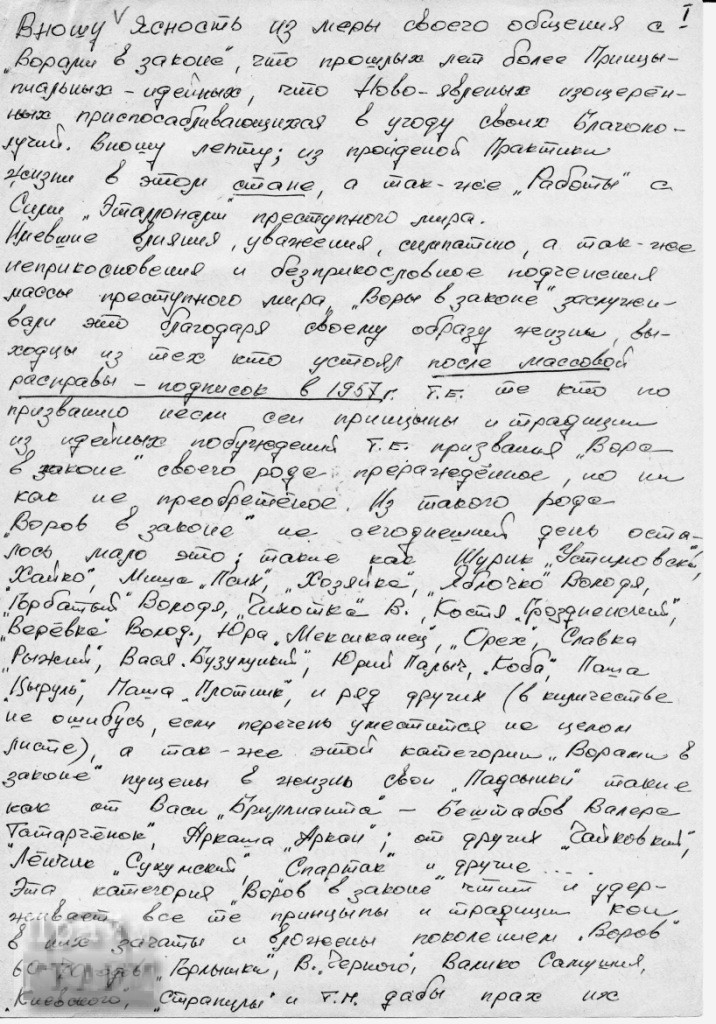 I
Вношу V ясность из меры своего общения с
„Ворами в законе", что прошлых лет более Принцы-
пиальных – идейных, что Ново-явленых изощерён-
ных приспосабливающихая в угоду своих Благопо-
лучий. Вношу лепту; из пройденой Практики
жизни в этом стане, а так-же „Работы" с
Сими „Эталлонами" преступного мира.
Имевшие влияния, уважения, симпатию, а так-же
неприкосновения и безприкословное подченения
массы преступного мира, „Воры в законе" заслужи-
вали это благодаря своему образу жизни, вы-
ходцы из тех кто устоял после массовой
расправы – подписок в 1957г. Т.Е. те кто по
призванию несли сеи принцыпы и традиции
из идейных побуждений Т.Е. призвания „Вора
в законе" своего рода прерождённое, но ни
как не преобретёное. Из такого рода
„Воров в законе" на сегоднешний день оста-
лось мало это; такие как Шурик „Устимовский",
„Хайко", Миша „Псих", „Хозяйка", „Яблочко" Володя,
„Горбатый" Володя, „Чихотка" В., Костя „Гроздненский",
„Верёвка" Волод., Юра „Мексиканец", „Орех", Славка
„Рыжий", Вася „Бузулуцкий", Юрий Палыч, „Коба", Паша
„Цыруль", Паша „Плотник", и ряд других (в количестве
не ошибусь, если перечень уместится на целом
листе), а так-же этой категории „Ворами в
законе" пущены в жизнь свои „Падсынки" такие
как от Васи „Бриллианта" – Бештабов Валера
„Татарчёнок", Аркаша „Аркан"; от других „Чайковский",
„Лёнчик „Сухумский", „Спартак" и другие....
Эта категория „Воров в законе" чтит и удер-
живает все те принцыпы и традиции кои
в них зачаты и вложены поколением „Воров"
„Горлышки", В. „Черного", Валико Самушия,
„Киевского", „Страпулы" и т.п. дабы прах их